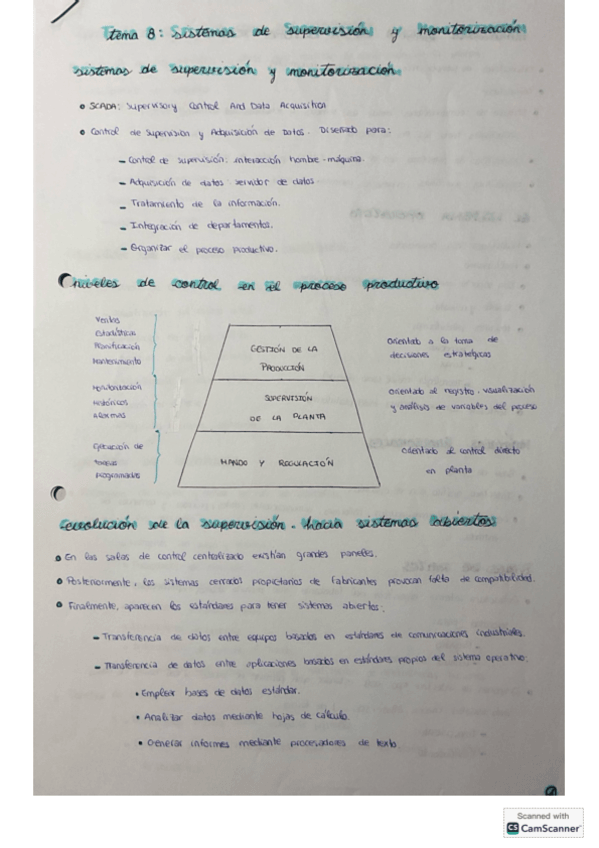 tema 8: Sistemas de Supervisión y Monitorización
sistemas de supervisión y monitorización
SCADA: Supervisory Control And Data Acquisition
Control de Supervisión y Adquisición de Datos. Diseñado para:
- Control de supervisión: interacción hombre-máquina.
- Adquisición de datos: servidor de datos
- Tratamiento de la información.
- Integración de departamentos.
- Organizar el proceso productivo.
niveles de control en el proceso productivo
Ventas
Estadísticas
Planificación
Mantenimiento
GESTIÓN DE LA
PRODUCCIÓN
Orientado a la toma de
decisiones estratégicas
Monitorización
Históricos
Alarmas
SUPERVISIÓN
DE LA PLANTA
Orientado al registro, visualización
y análisis de variables del proceso
Ejecución de
tareas
programadas
MANDO Y REGULACIÓN
Orientado al control directo
en planta
evolución de la supervisión. hacia sistemas abiertos
En las salas de control centralizado existían grandes paneles.
Posteriormente, los sistemas cerrados propietarios de fabricantes provocan falta de compatibilidad.
Finalmente, aparecen los estándares para tener sistemas abiertos:
- Transferencia de datos entre equipos basados en estándares de comunicaciones industriales.
- Transferencia de datos entre aplicaciones basados en estándares propios del sistema operativo:
• Emplear bases de datos estándar.
• Analizar datos mediante hojas de cálculo.
• Generar informes mediante procesadores de texto
Scanned with
CS CamScanner